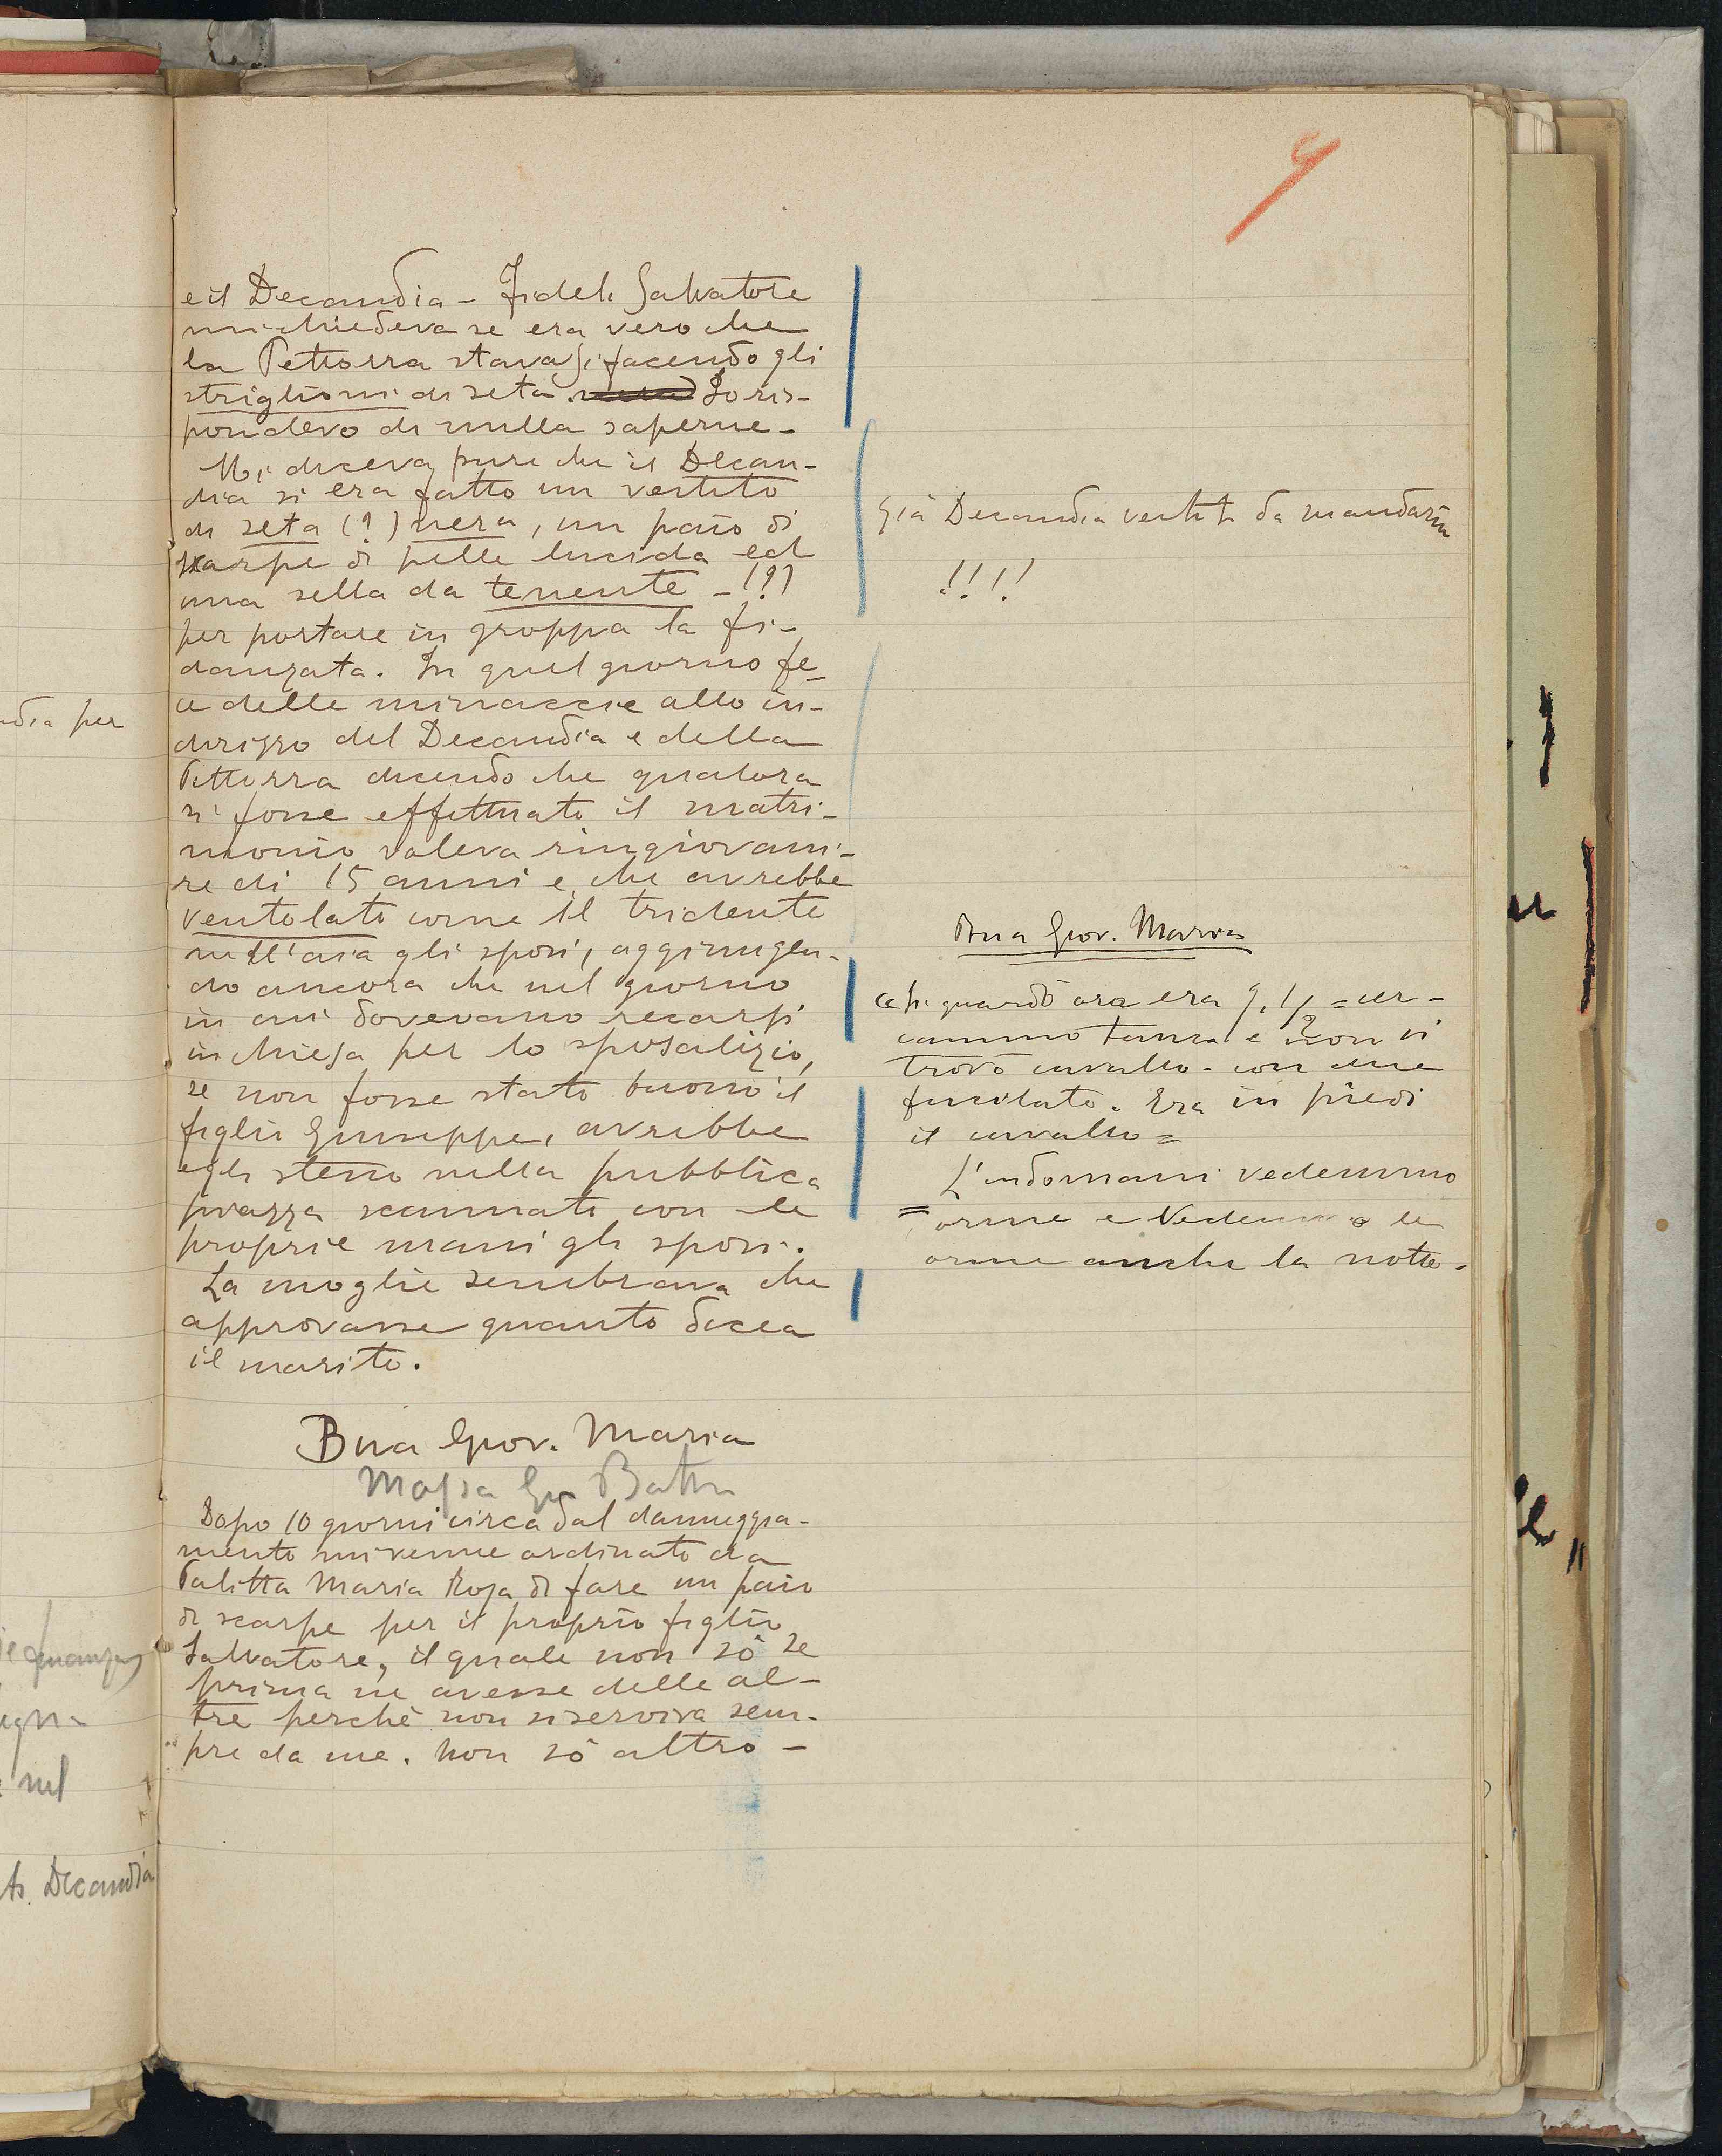 e il Decandia - Fideli Salvatore
mi chiedeva se era vero che
la Pettorra stavasi facendo gli
striglioni di seta. Io ris-
pondevo di nulla saperne -
Mi diceva pure che il Decan-
dia si era fatto un vestito
di seta (?) nera, un paio di
scarpe di pelle lucida ed
una sella da tenente - (?)
per portare in groppa la fi-
danzata. In quel giorno fe-
ce delle minaccie allo in-
dirizzo del Decandia e della
Pettorra dicendo che qualora
si fosse effettuato il matri-
monio voleva ringiovani-
re di 15 anni e che avrebbe
ventolato come il tridente
nell'aia gli sposi, aggiungen-
do ancora che nel giorno
in cui dovevano recarsi
in chiesa per lo sposalizio,
se non fosse stato buono il
figlio Giuseppe, avrebbe
egli stesso nella pubblica
piazza scannati con le
proprie mani gli sposi.
La moglie sembrava che
approvasse quanto dicea
il marito.
Bua Giov. Maria
Massa Gio Batta
Dopo 10 giorni circa dal danneggia-
mento mi venne ordinato da
Palitta Maria Rosa di fare un paio
di scarpe per il proprio figlio
Salvatore, il quale non sò se
prima ne avesse delle al-
tre perchè non si serviva sem-
pre da me. Non sò altro -
9
Già Decandia vestito da mandarin
!!!!
Bua Giov. Maria
guardò ora era 9. 1/2 = cer-
cammo tanca e non si
trovò cavallo - con due
fucilate. Era in piedi
il cavallo =
L'indomani vedemmo
= orme e vedemmo le
orme anche la notte.
ndia per
nel
Decandia